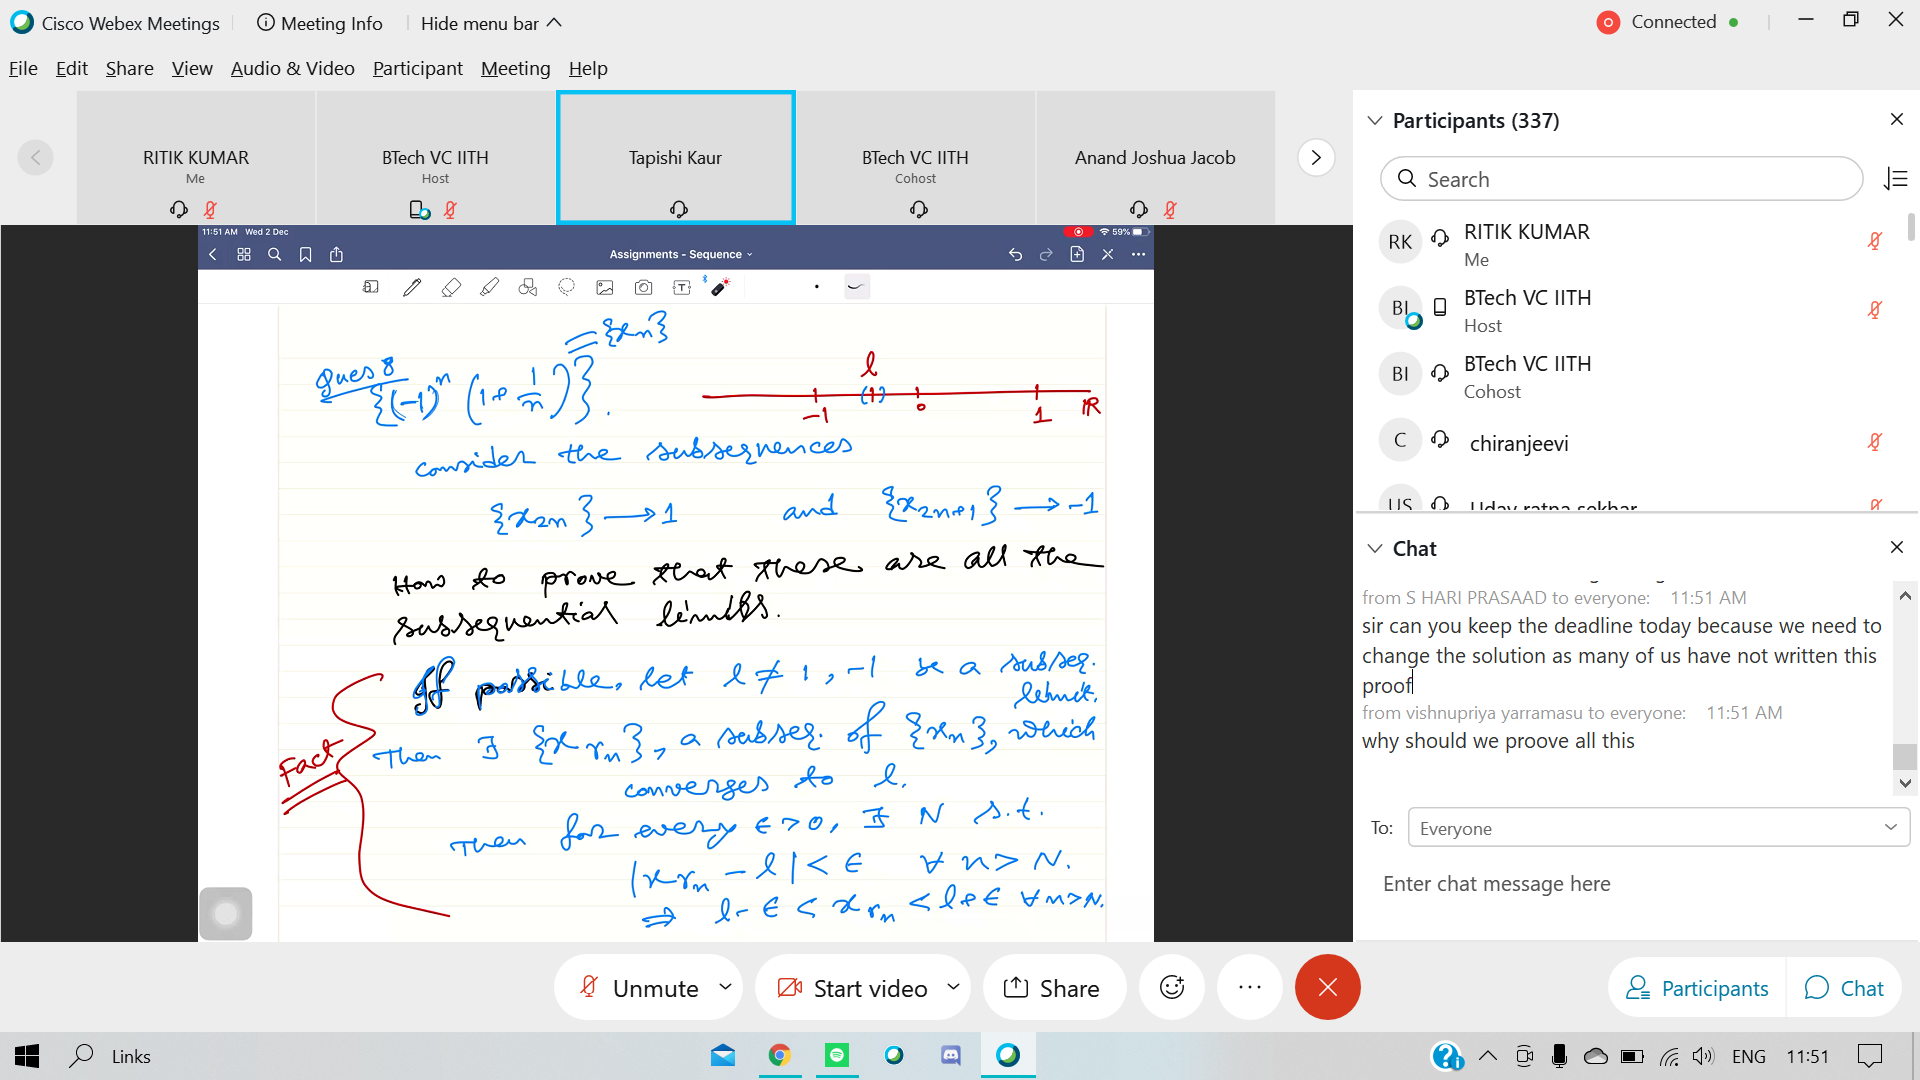 Cisco Webex Meetings Meeting Info Hide menu bar Connected
File Edit Share View Audio & Video Participant Meeting Help
RITIK KUMAR
Me
BTech VC IITH
Host
Tapishi Kaur
BTech VC IITH
Cohost
Anand Joshua Jacob
11:51 AM Wed 2 Dec
59%
Assignments - Sequence
= {xn}
Ques 8
{(-1)^n (1+1/n)}.
l
-1 0 1 IR
consider the subsequences
{x2n} → 1 and {x2n+1} → -1
How to prove that these are all the
subsequential limits.
If possible, let l ≠ 1, -1 be a subseq.
limit.
Then ∃ {x_rn}, a subseq. of {xn}, which
converges to l.
Fact
Then for every ϵ>0, ∃ N s.t.
|x_rn - l| < ϵ ∀ n > N.
⇒ l-ϵ < x_rn < l+ϵ ∀ n>N.
Participants (337)
Search
RK RITIK KUMAR
Me
BI BTech VC IITH
Host
BI BTech VC IITH
Cohost
C chiranjeevi
US Uday ratna sekhar
Chat
from S HARI PRASAAD to everyone: 11:51 AM
sir can you keep the deadline today because we need to
change the solution as many of us have not written this
proof
from vishnupriya yarramasu to everyone: 11:51 AM
why should we proove all this
To: Everyone
Enter chat message here
Unmute Start video Share Participants Chat
Links ENG 11:51